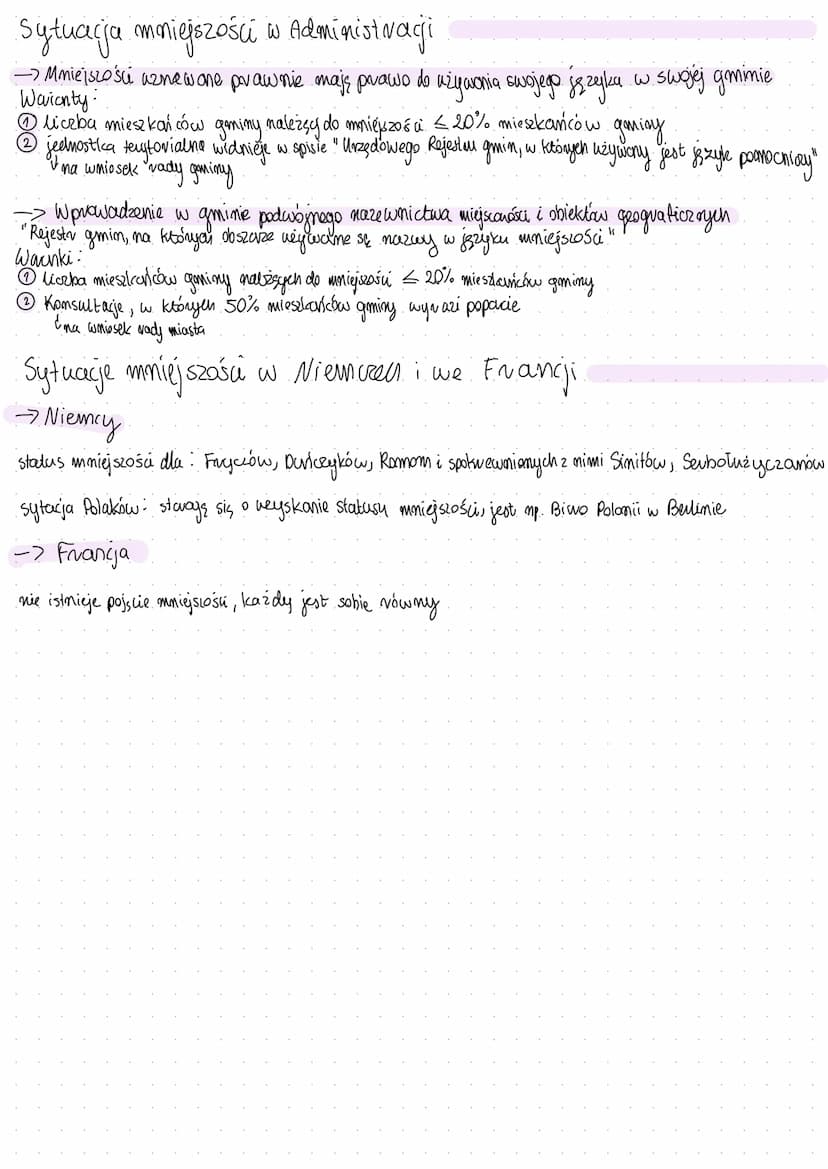 Sytuacja mniejszości w Administracji
→ Mniejszości uznawane prawnie mają prawo do używania swojego języka w swojej gminie
Warionty:
① liczba mieszkańców gminy należący do mniejszości ≤ 20% mieszkańców gminy
② jednostka terytorialna widnieje w spisie "Urzędowego Rejestru gmin, w których używany jest język pomocniczy"
↳ na wniosek rady gminy
→ Wprowadzenie w gminie podwójnego nazewnictwa miejscowości i obiektów geograficznych
"Rejestr gmin, na których obszarze używane są nazwy w języku mniejszości"
Warunki:
① liczba mieszkańców gminy należących do mniejszości ≤ 20% mieszkańców gminy
② Konsultacje, w których 50% mieszkańców gminy wyrazi poparcie
↳ na wniosek rady miasta
Sytuacje mniejszości w Niemczech i we Francji
→ Niemcy
status mniejszości dla: Fryzów, Duńczyków, Romom i spokrewnionych z nimi Sinitów, Serbołużyczanów
sytacja Polaków: starają się o uzyskanie statusu mniejszości, jest np. Biuro Polonii w Berlinie
→ Francja
nie istnieje pojęcie mniejszości, każdy jest sobie równy